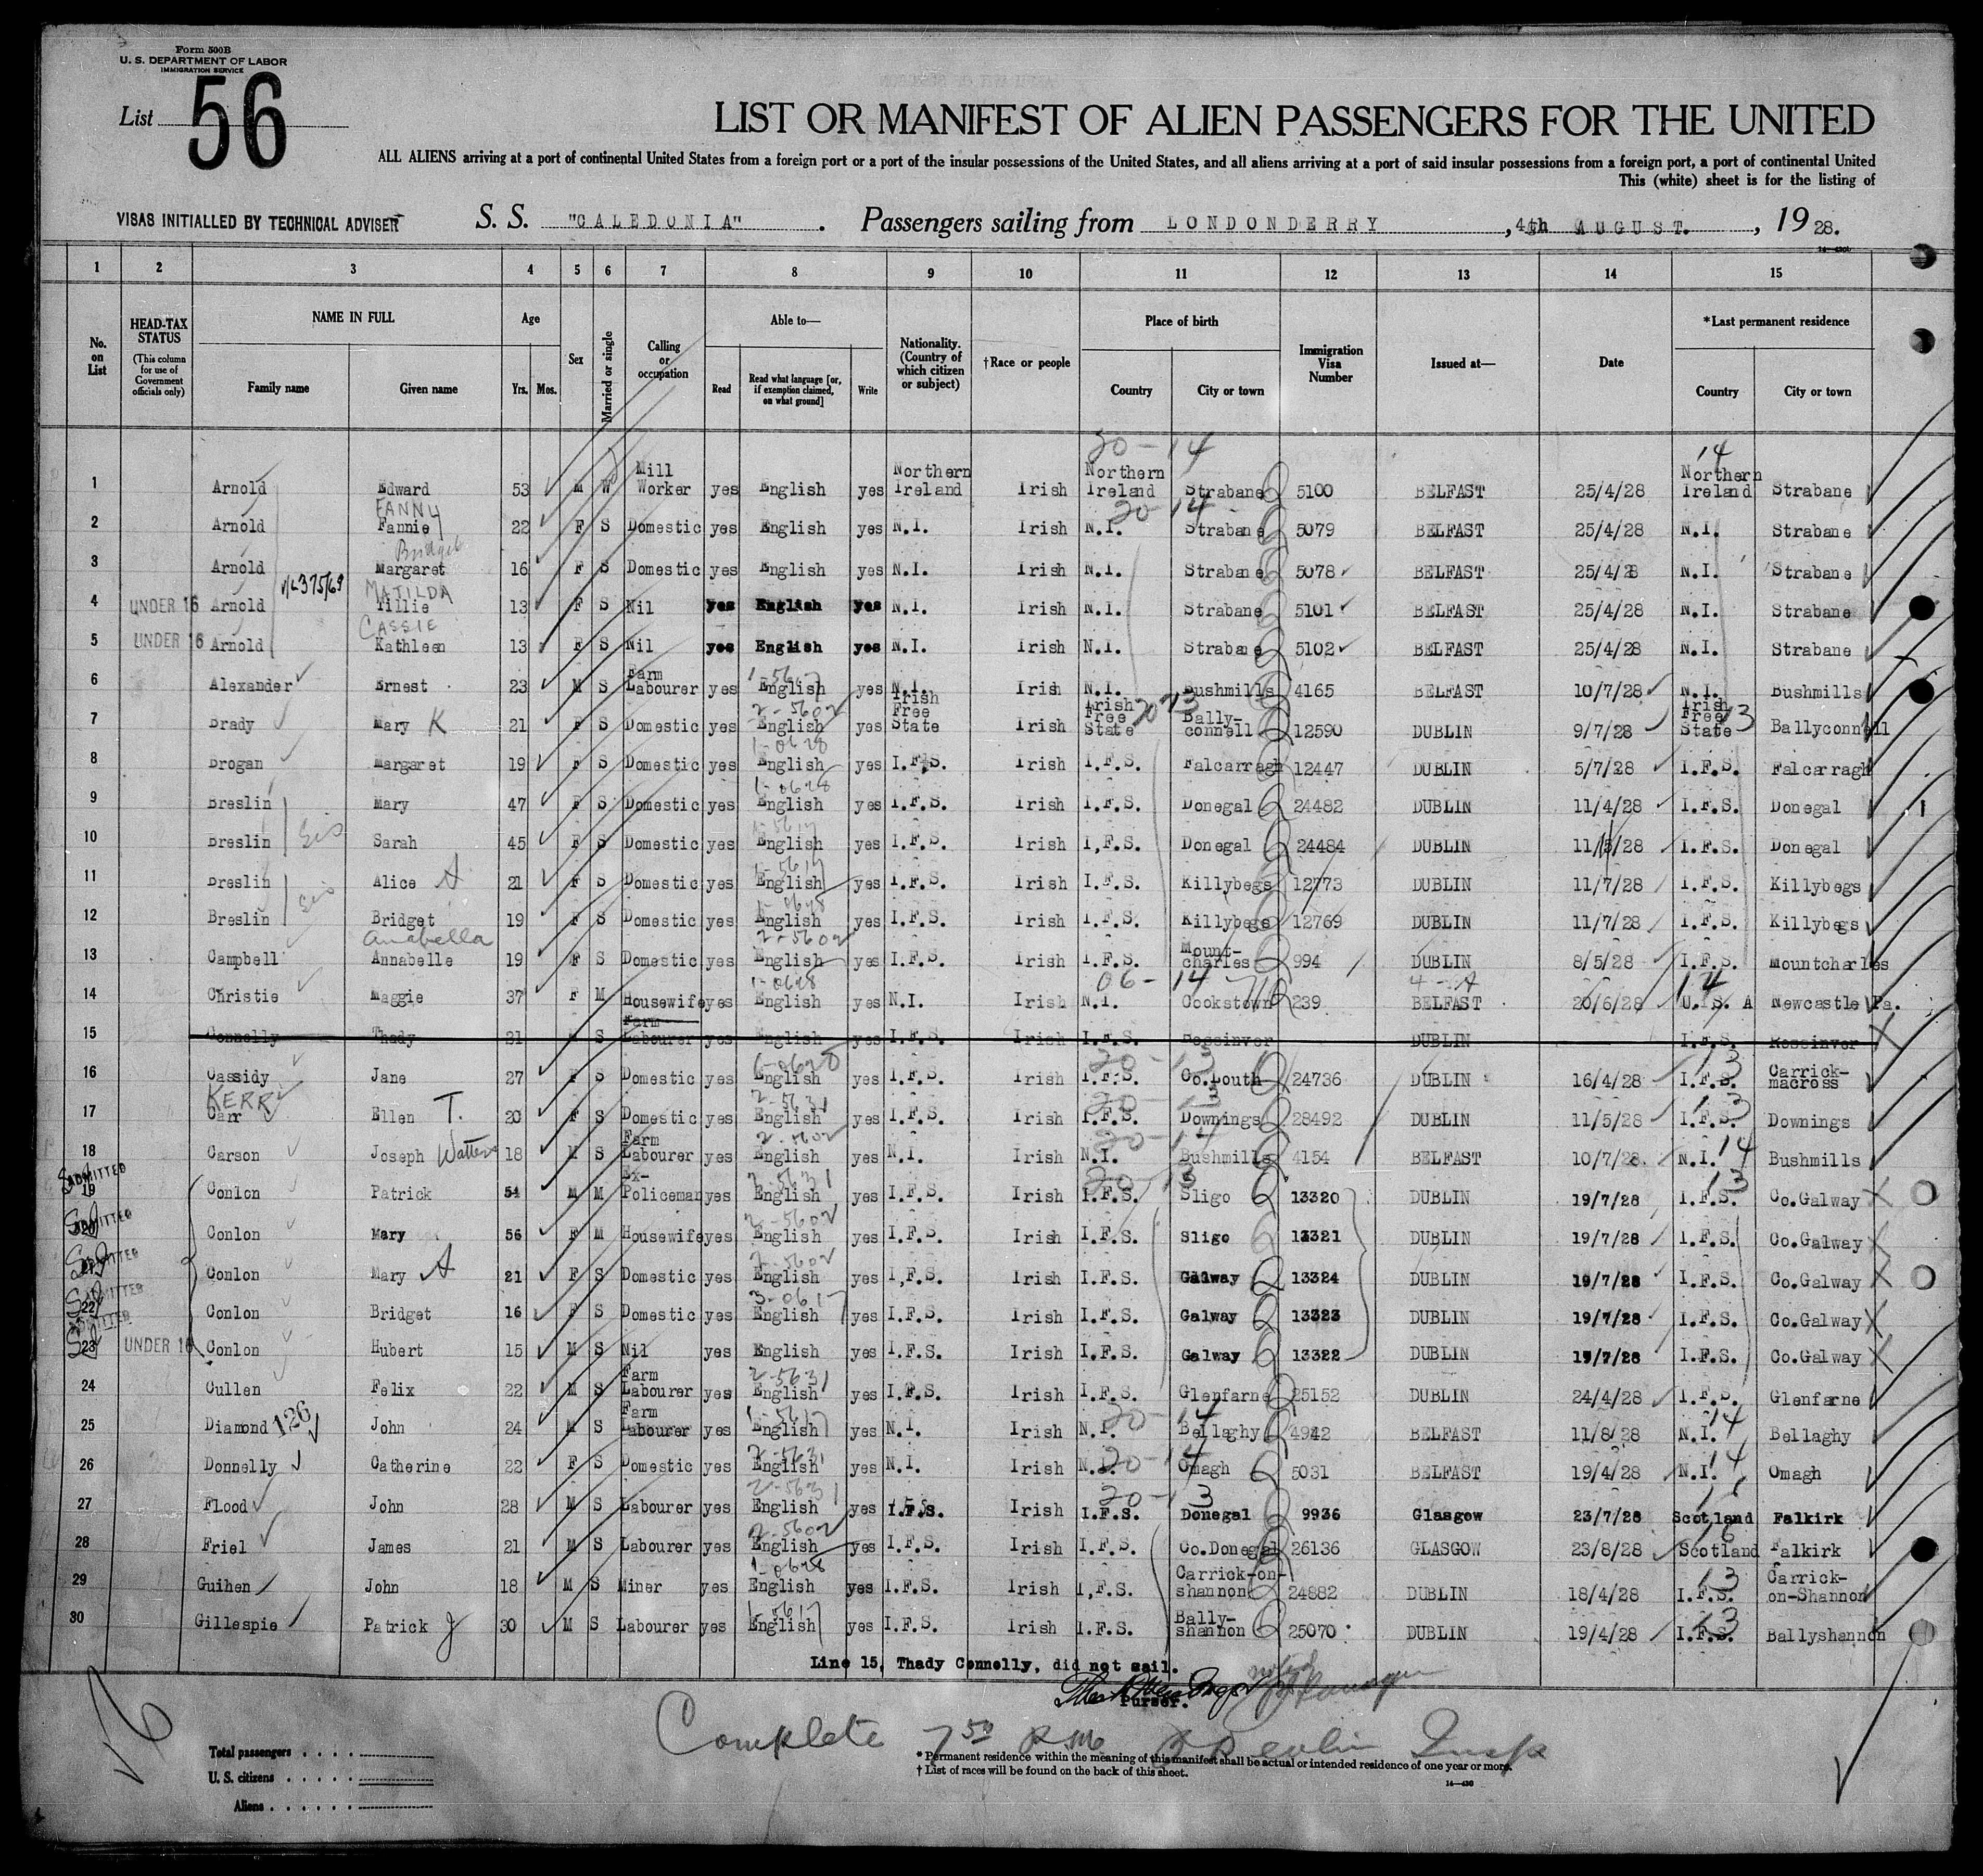 Form 500B
U. S. DEPARTMENT OF LABOR
IMMIGRATION SERVICE
List 56
LIST OR MANIFEST OF ALIEN PASSENGERS FOR THE UNITED
ALL ALIENS arriving at a port of continental United States from a foreign port or a port of the insular possessions of the United States, and all aliens arriving at a port of said insular possessions from a foreign port, a port of continental United
This (white) sheet is for the listing of
VISAS INITIALLED BY TECHNICAL ADVISER S. S. "CALEDONIA". Passengers sailing from LONDONDERRY, 4th AUGUST., 1928.
1 2 3 4 5 6 7 8 9 10 11 12 13 14 15
No. on List HEAD-TAX STATUS (This column for use of Government officials only) NAME IN FULL Family name Given name Age Yrs. Mos. Sex Married or single Calling or occupation Able to— Read Read what language [or, if exemption claimed, on what ground] Write Nationality. (Country of which citizen or subject) †Race or people Place of birth Country City or town Immigration Visa Number Issued at— Date *Last permanent residence Country City or town
20-14 14
1 Arnold Edward 53 M W Mill Worker yes English yes Northern Ireland Irish Northern Ireland Strabane 5100 BELFAST 25/4/28 Northern Ireland Strabane
FANNY 20-14
2 Arnold Fannie 22 F S Domestic yes English yes N.I. Irish N.I. Strabane 5079 BELFAST 25/4/28 N.I. Strabane
Bridget
3 Arnold Margaret 16 F S Domestic yes English yes N.I. Irish N.I. Strabane 5078 BELFAST 25/4/28 N.I. Strabane
MATILDA
4 UNDER 16 Arnold Tillie 13 F S Nil yes English yes N.I. Irish N.I. Strabane 5101 BELFAST 25/4/28 N.I. Strabane
CASSIE
5 UNDER 16 Arnold Kathleen 13 F S Nil yes English yes N.I. Irish N.I. Strabane 5102 BELFAST 25/4/28 N.I. Strabane
6 Alexander Ernest 23 M S Farm Labourer yes English yes N.I. Irish N.I. Bushmills 4165 BELFAST 10/7/28 N.I. Bushmills
2-5602
7 Brady Mary K 21 F S Domestic yes English yes Irish Free State Irish Irish Free State Bally-connell 12590 DUBLIN 9/7/28 Irish Free State 13 Ballyconnell
1-0628
8 Brogan Margaret 19 F S Domestic yes English yes I.F.S. Irish I.F.S. Falcarragh 12447 DUBLIN 5/7/28 I.F.S. Falcarragh
1-0628
9 Breslin Mary 47 F S Domestic yes English yes I.F.S. Irish I.F.S. Donegal 24482 DUBLIN 11/4/28 I.F.S. Donegal
10 Breslin Sis Sarah 45 F S Domestic yes English yes I.F.S. Irish I,F.S. Donegal 24484 DUBLIN 11/5/28 I.F.S. Donegal
1-5617
11 Breslin Alice A 21 F S Domestic yes English yes I.F.S. Irish I.F.S. Killybegs 12773 DUBLIN 11/7/28 I.F.S. Killybegs
12 Breslin Sis Bridget 19 F S Domestic yes English yes I.F.S. Irish I.F.S. Killybegs 12769 DUBLIN 11/7/28 I.F.S. Killybegs
Anabella 2-5602
13 Campbell Annabelle 19 F S Domestic yes English yes I.F.S. Irish I.F.S. Mount-charles 994 DUBLIN 8/5/28 I.F.S. Mountcharles
1-0628 06-14 14
14 Christie Maggie 37 F M Housewife yes English yes N.I. Irish N.I. Cookstown 239 BELFAST 20/6/28 U.S.A Newcastle Pa.
15 Connelly Thady 21 M S Farm Labourer yes English yes I.F.S. Irish I.F.S. Rossinver DUBLIN I.F.S. Rossinver
20-13 13
16 Cassidy Jane 27 F S Domestic yes English yes I.F.S. Irish I.F.S. Co.Louth 24736 DUBLIN 16/4/28 I.F.S. Carrick-macross
KERR 2-5631
17 Carr Ellen T. 20 F S Domestic yes English yes I.F.S. Irish I.F.S. Downings 28492 DUBLIN 11/5/28 I.F.S. Downings
2-5602 20-14
18 Carson Joseph Watters 18 M S Farm Labourer yes English yes N.I. Irish N.I. Bushmills 4154 BELFAST 10/7/28 N.I. 14 Bushmills
2-5631 20-13 13
ADMITTED 19 Conlon Patrick 54 M M Ex-Policeman yes English yes I.F.S. Irish I.F.S. Sligo 13320 DUBLIN 19/7/28 I.F.S. Co.Galway
2-5602
ADMITTED 20 Conlon Mary 56 F M Housewife yes English yes I.F.S. Irish I.F.S. Sligo 13321 DUBLIN 19/7/28 I.F.S. Co.Galway
2-5602
ADMITTED 21 Conlon Mary A 21 F S Domestic yes English yes I,F.S. Irish I.F.S. Galway 13324 DUBLIN 19/7/28 I.F.S. Co.Galway
3-0617
ADMITTED 22 Conlon Bridget 16 F S Domestic yes English yes I.F.S. Irish I.F.S. Galway 13323 DUBLIN 19/7/28 I.F.S. Co.Galway
ADMITTED 23 UNDER 16 Conlon Hubert 15 M S Nil yes English yes I.F.S. Irish I.F.S. Galway 13322 DUBLIN 19/7/28 I.F.S. Co.Galway
2-5631
24 Cullen Felix 22 M S Farm Labourer yes English yes I.F.S. Irish I.F.S. Glenfarne 25152 DUBLIN 24/4/28 I.F.S. Glenfarne
1-5617 20-14 14
25 Diamond 126 John 24 M S Farm Labourer yes English yes N.I. Irish N.I. Bellaghy 4942 BELFAST 11/8/28 N.I. Bellaghy
2-5631 20-14 14
26 Donnelly Catherine 22 F S Domestic yes English yes N.I. Irish N.I. Omagh 5031 BELFAST 19/4/28 N.I. Omagh
2-5631 20-13
27 Flood John 28 M S Labourer yes English yes I.F.S. Irish I.F.S. Donegal 9936 Glasgow 23/7/28 Scotland Falkirk
2-5602
28 Friel James 21 M S Labourer yes English yes I.F.S. Irish I.F.S. Co.Donegal 26136 GLASGOW 23/8/28 Scotland Falkirk
1-0628 13
29 Guihen John 18 M S Miner yes English yes I.F.S. Irish I,F.S. Carrick-on-shannon 24882 DUBLIN 18/4/28 I.F.S. Carrick-on-Shannon
1-5617 13
30 Gillespie Patrick J 30 M S Labourer yes English yes I.F.S. Irish I.F.S. Bally-shannon 25070 DUBLIN 19/4/28 I.F.S. Ballyshannon
Line 15, Thady Connelly, did not sail.
noted
Purser.
Complete 7 50 P.M. Insp
Total passengers . . . .
U. S. citizens . . . . .
Aliens . . . . . .
* Permanent residence within the meaning of this manifest shall be actual or intended residence of one year or more.
† List of races will be found on the back of this sheet.
14—430